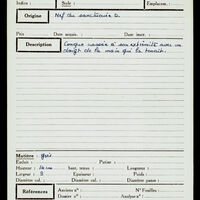 Indice : Salle : Emplacem. :
Origine Nef du sanctuaire D.
Prix Date acquis. : Date inscr. :
Description Conque cassée à son extrémité avec un
doigt de la main qui la tenait.
Matière : grès
Enduit : Patine :
Hauteur : haut. totale : Longueur :
Largeur : 9 Epaisseur : Poids :
Diamètre col. : Diamètre panse :
Références Anciens nos : N° Fouilles :
Dossier n° : Analyse n° :